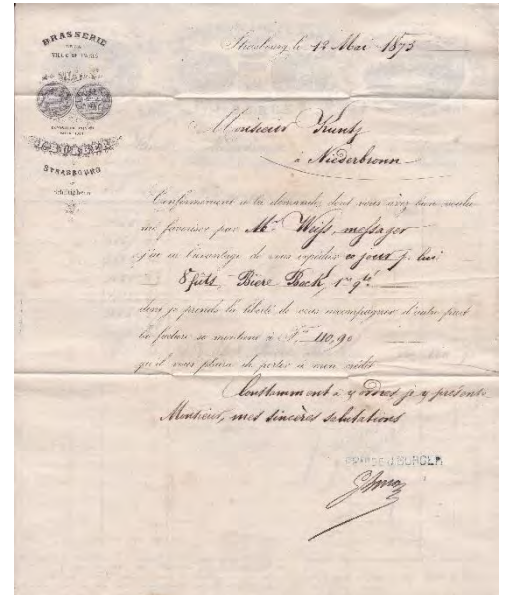 BRASSERIE
DE LA
VILLE DE PARIS
STRASBOURG
Schiltigheim
Strasbourg, le 12 Mai 1875
Monsieur Kuntz
à Niederbronn
Conformément à la demande dont vous avez bien voulu
me favoriser par Mr Weiss, messager
j'ai eu l'avantage de vous expédier ce jour p. lui
8 fûts Bière Bock, 1re qté
dont je prends la liberté de vous accompagner d'autre part
la facture se montant à Frs 110,90
qu'il vous plaira de porter à mon crédit
Constamment à v/ ordres je v/ présente
Monsieur, mes sincères salutations
BURGER